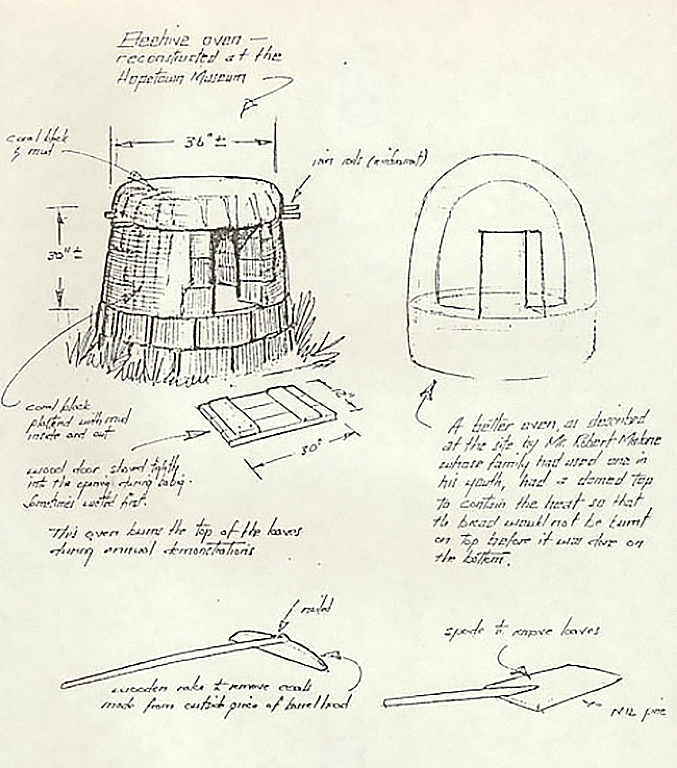 Beehive oven —
reconstructed at the
Hopetown Museum
36" ±
coral block
& mud
iron rods (reinforcement)
30" ±
coral block
plastered with mud
inside and out
wood door shoved tightly
into the opening during baking.
Sometimes wetted first.
30"
This oven burns the top of the loaves
during annual demonstrations
A better oven, as described
at the site by Mr. Robert Malone
whose family had used one in
his youth, had a domed top
to contain the heat so that
the bread would not be burnt
on top before it was done on
the bottom.
nailed
wooden rake to remove coals
made from outside piece of barrel head
spade to remove loaves
pine